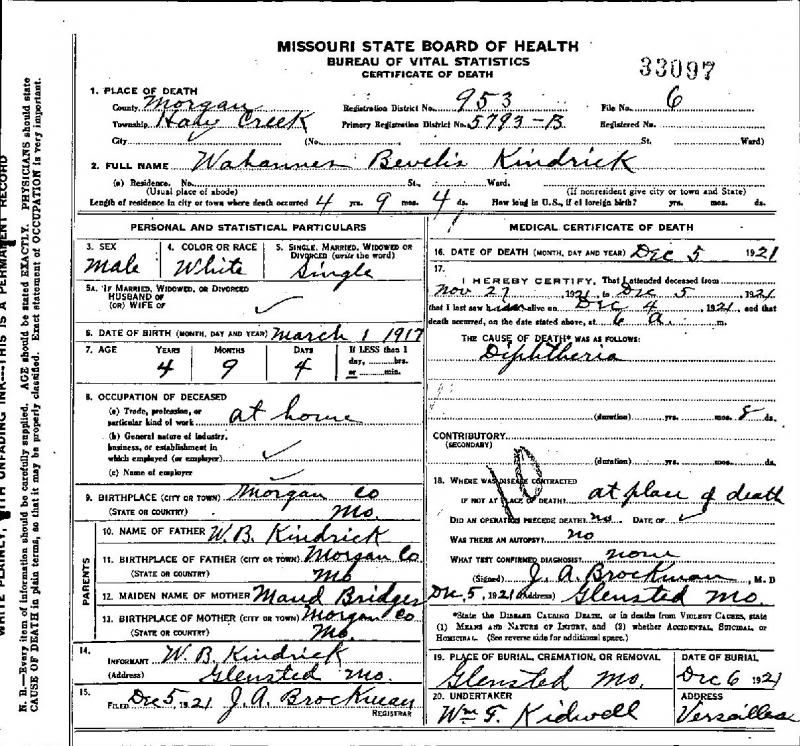 MISSOURI STATE BOARD OF HEALTH
BUREAU OF VITAL STATISTICS
CERTIFICATE OF DEATH
33097
1. PLACE OF DEATH
County Morgan Registration District No. 953 File No. 6
Township Haw Creek Primary Registration District No. 5793-B Registered No.
City (No. St. Ward)
2. FULL NAME Wahannes Bevelis Kindrick
(a) Residence. No. St., Ward.
(Usual place of abode) (If nonresident give city or town and State)
Length of residence in city or town where death occurred 4 yrs. 9 mos. 4 ds. How long in U.S., if of foreign birth? yrs. mos. ds.
PERSONAL AND STATISTICAL PARTICULARS
3. SEX 4. COLOR OR RACE 5. SINGLE, MARRIED, WIDOWED OR
DIVORCED (write the word)
Male White Single
5A. IF MARRIED, WIDOWED, OR DIVORCED
HUSBAND OF
(OR) WIFE OF ✓
6. DATE OF BIRTH (MONTH, DAY AND YEAR) March 1 1917
7. AGE YEARS MONTHS DAYS If LESS than 1
day, hrs.
or min.
4 9 4
8. OCCUPATION OF DECEASED
(a) Trade, profession, or
particular kind of work at home
(b) General nature of industry,
business, or establishment in
which employed (or employer) ✓
(c) Name of employer
9. BIRTHPLACE (CITY OR TOWN) Morgan Co
(STATE OR COUNTRY) Mo.
PARENTS
10. NAME OF FATHER W. B. Kindrick
11. BIRTHPLACE OF FATHER (CITY OR TOWN) Morgan Co
(STATE OR COUNTRY) Mo
12. MAIDEN NAME OF MOTHER Maud Bridges
13. BIRTHPLACE OF MOTHER (CITY OR TOWN) Morgan Co
(STATE OR COUNTRY) Mo.
14.
INFORMANT W B Kindrick
(Address) Glensted Mo.
15.
FILED Dec 5, 1921 J. A. Brockman
REGISTRAR
MEDICAL CERTIFICATE OF DEATH
16. DATE OF DEATH (MONTH, DAY AND YEAR) Dec 5 1921
17.
I HEREBY CERTIFY, That I attended deceased from
Nov 27, 1921, to Dec 5, 1921
that I last saw him alive on Dec 4, 1921, and that
death occurred, on the date stated above, at 6 a. m.
THE CAUSE OF DEATH* WAS AS FOLLOWS:
Diphtheria
(duration) yrs. mos. 8 ds.
CONTRIBUTORY
(SECONDARY)
(duration) yrs. mos. ds.
18. WHERE WAS DISEASE CONTRACTED
IF NOT AT PLACE OF DEATH? at place of death
10
DID AN OPERATION PRECEDE DEATH? no DATE OF ✓
WAS THERE AN AUTOPSY? no
WHAT TEST CONFIRMED DIAGNOSIS? none
(Signed) J. A. Brockman, M. D
Dec 5, 1921 (Address) Glensted Mo.
*State the DISEASE CAUSING DEATH, or in deaths from VIOLENT CAUSES, state
(1) MEANS AND NATURE OF INJURY, and (2) whether ACCIDENTAL, SUICIDAL, OR
HOMICIDAL. (See reverse side for additional space.)
19. PLACE OF BURIAL, CREMATION, OR REMOVAL DATE OF BURIAL
Glensted Mo. Dec 6 1921
20. UNDERTAKER ADDRESS
Wm F. Kidwell Versailles
WRITE PLAINLY, WITH UNFADING INK---THIS IS A PERMANENT RECORD
N. B.—Every item of information should be carefully supplied. AGE should be stated EXACTLY. PHYSICIANS should state
CAUSE OF DEATH in plain terms, so that it may be properly classified. Exact statement of OCCUPATION is very important.